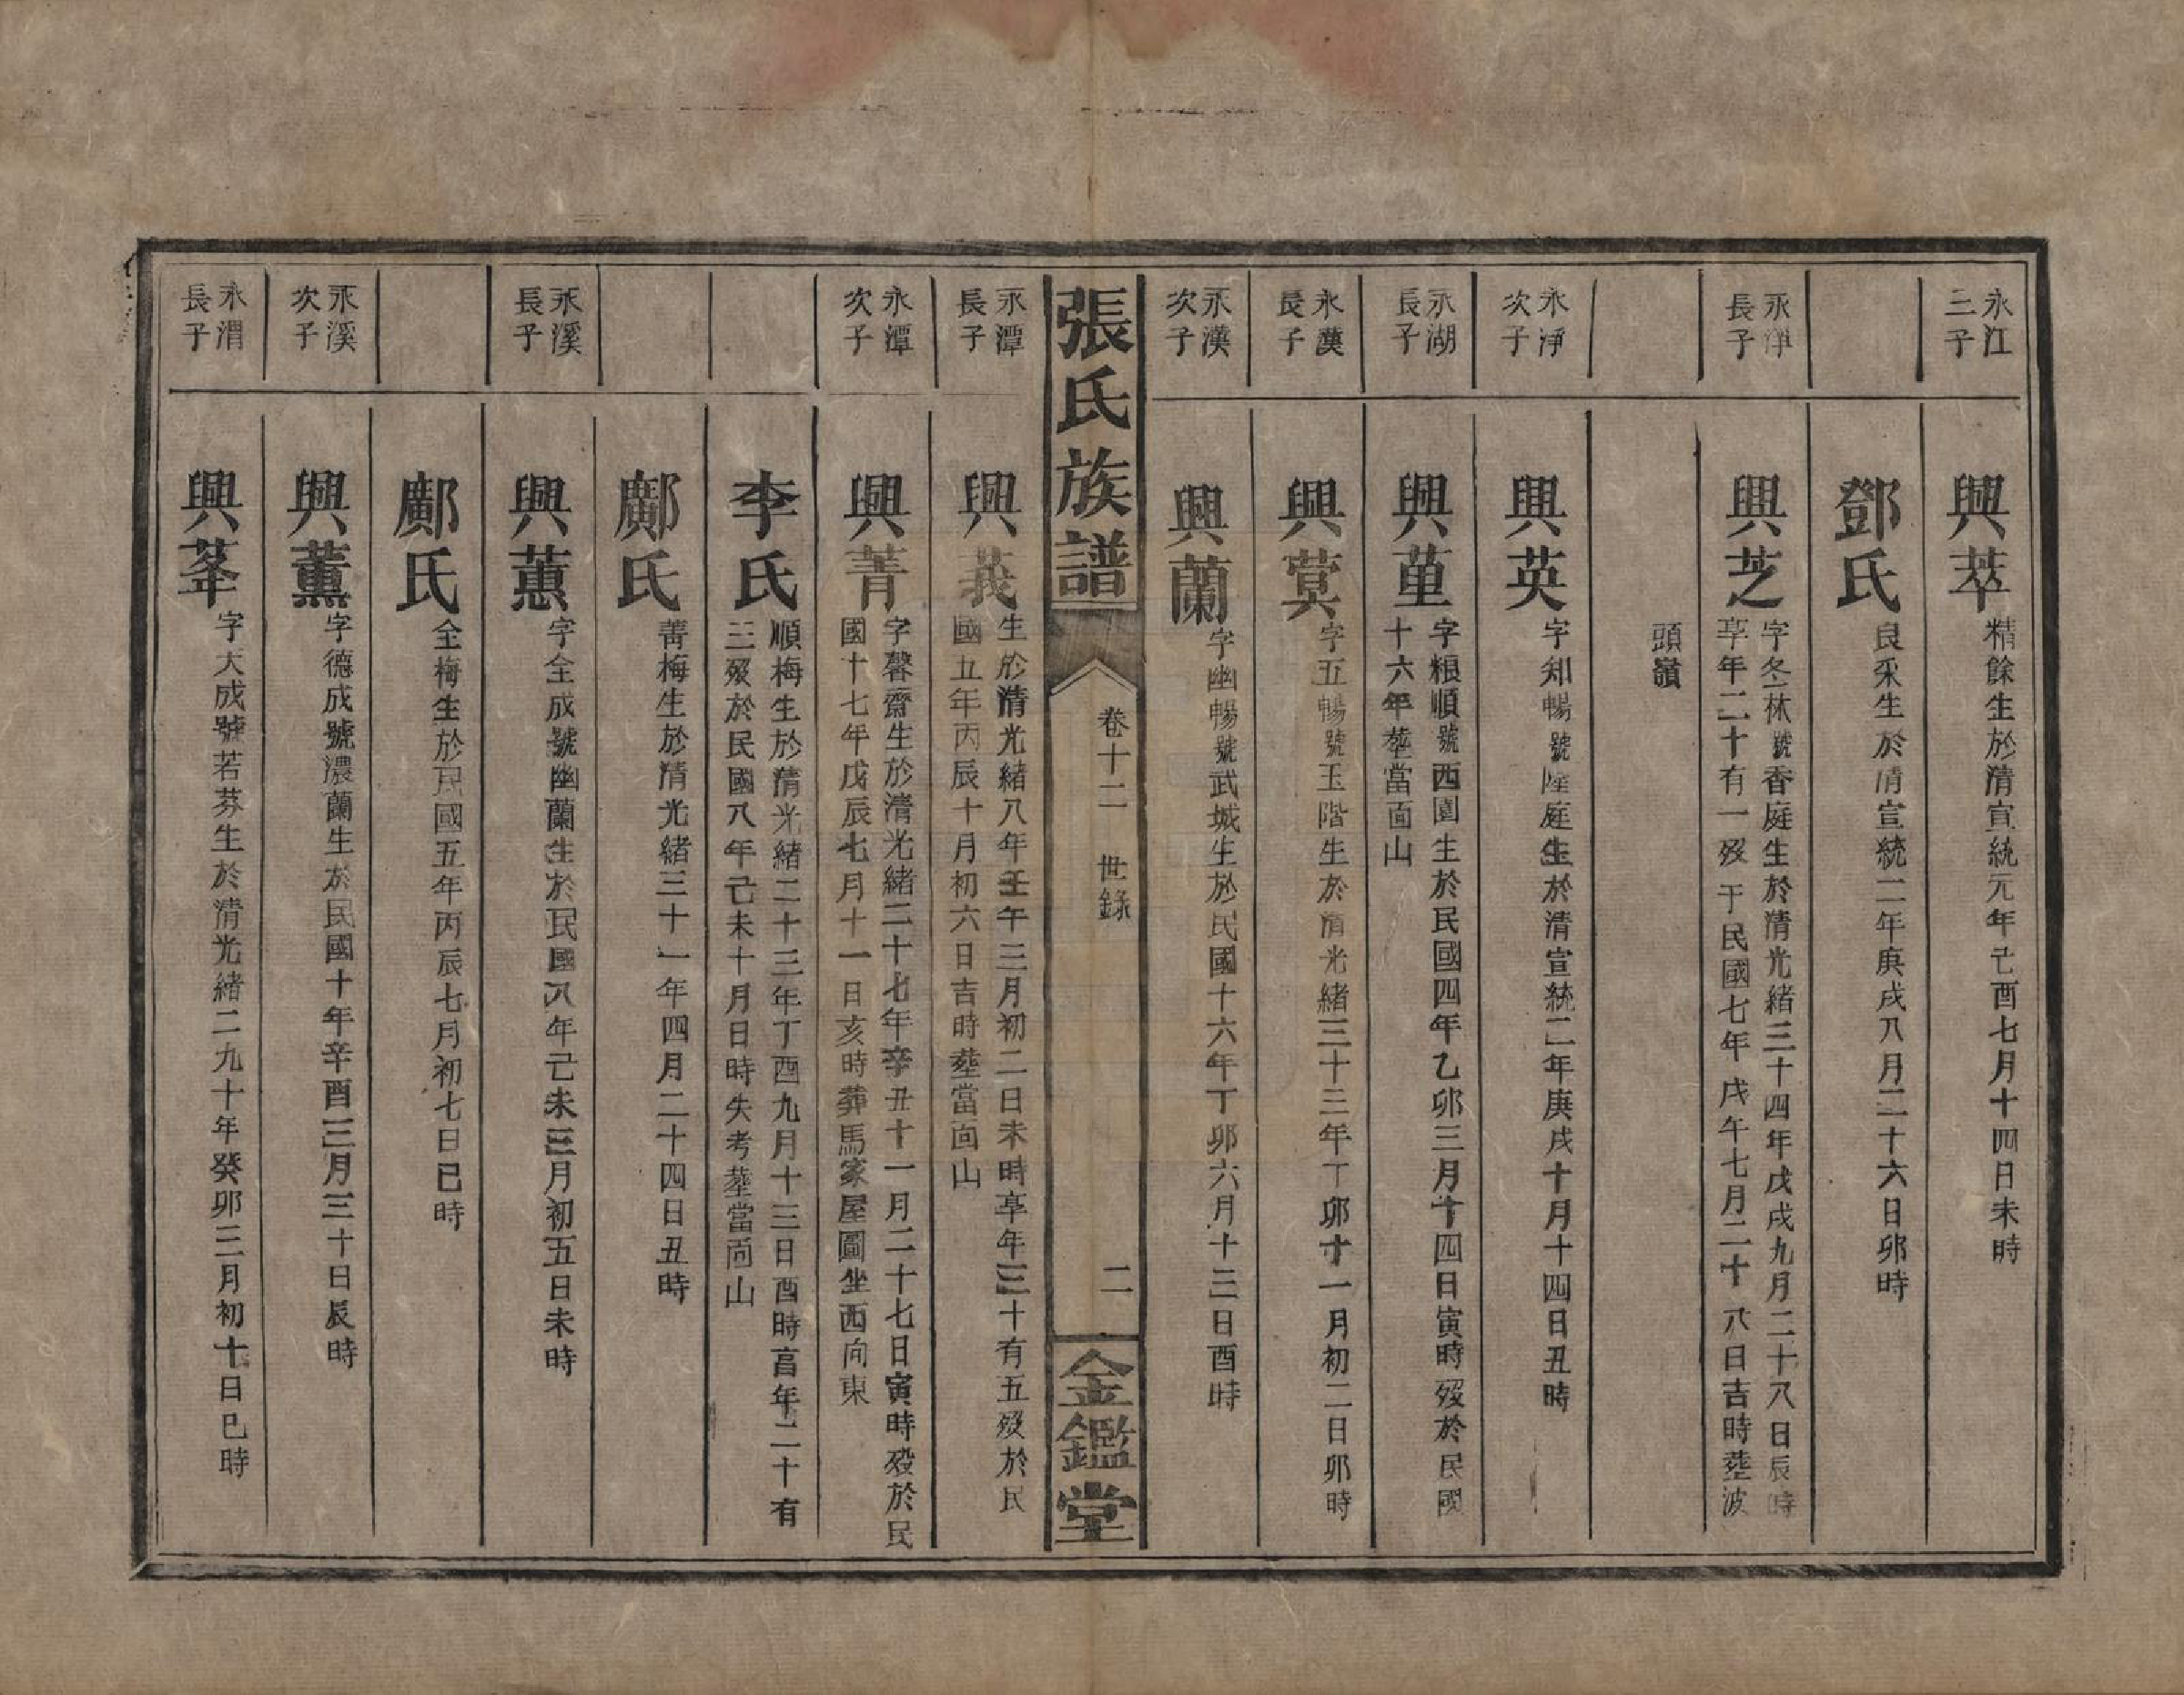 永江
三子
興萃
精餘生於清宣統元年己酉七月十四日未時
鄧氏
良采生於清宣統二年庚戌八月二十六日卯時
永淨
長子
興芝
字冬林號香庭生於清光緒三十四年戊戌九月二十八日辰時
享年二十有一歿于民國七年戊午七月二十八日吉時塟波
頭嶺
永淨
次子
興英
字知暢號陞庭生於清宣統二年庚戌十月十四日丑時
永湖
長子
興菫
字粮順號西園生於民國四年乙卯三月十四日寅時歿於民國
十六年塟當面山
永漢
長子
興蓂
字五暢號玉階生於清光緒三十三年丁卯十一月初二日卯時
永漢
次子
興蘭
字幽暢號武城生於民國十六年丁卯六月十三日酉時
張氏族譜
卷十二 世錄
二
金鑑堂
永潭
長子
興莪
生於清光緒八年壬午三月初二日未時享年三十有五歿於民
國五年丙辰十月初六日吉時塟當面山
永潭
次子
興菁
字馨齋生於清光緒二十七年辛丑十一月二十七日寅時歿於民
國十七年戊辰七月十一日亥時葬馬家屋圖坐西向東
李氏
順梅生於清光緒二十三年丁酉九月十三日酉時享年二十有
三歿於民國八年己未十月日時失考塟當面山
鄺氏
菁梅生於清光緒三十一年四月二十四日丑時
永溪
長子
興蕙
字全成號幽蘭生於民國八年己未三月初五日未時
鄺氏
全梅生於民國五年丙辰七月初七日巳時
永溪
次子
興薰
字德成號濃蘭生於民國十年辛酉三月三十日辰時
永渭
長子
興莑
字大成號若芬生於清光緒二九十年癸卯三月初十日巳時